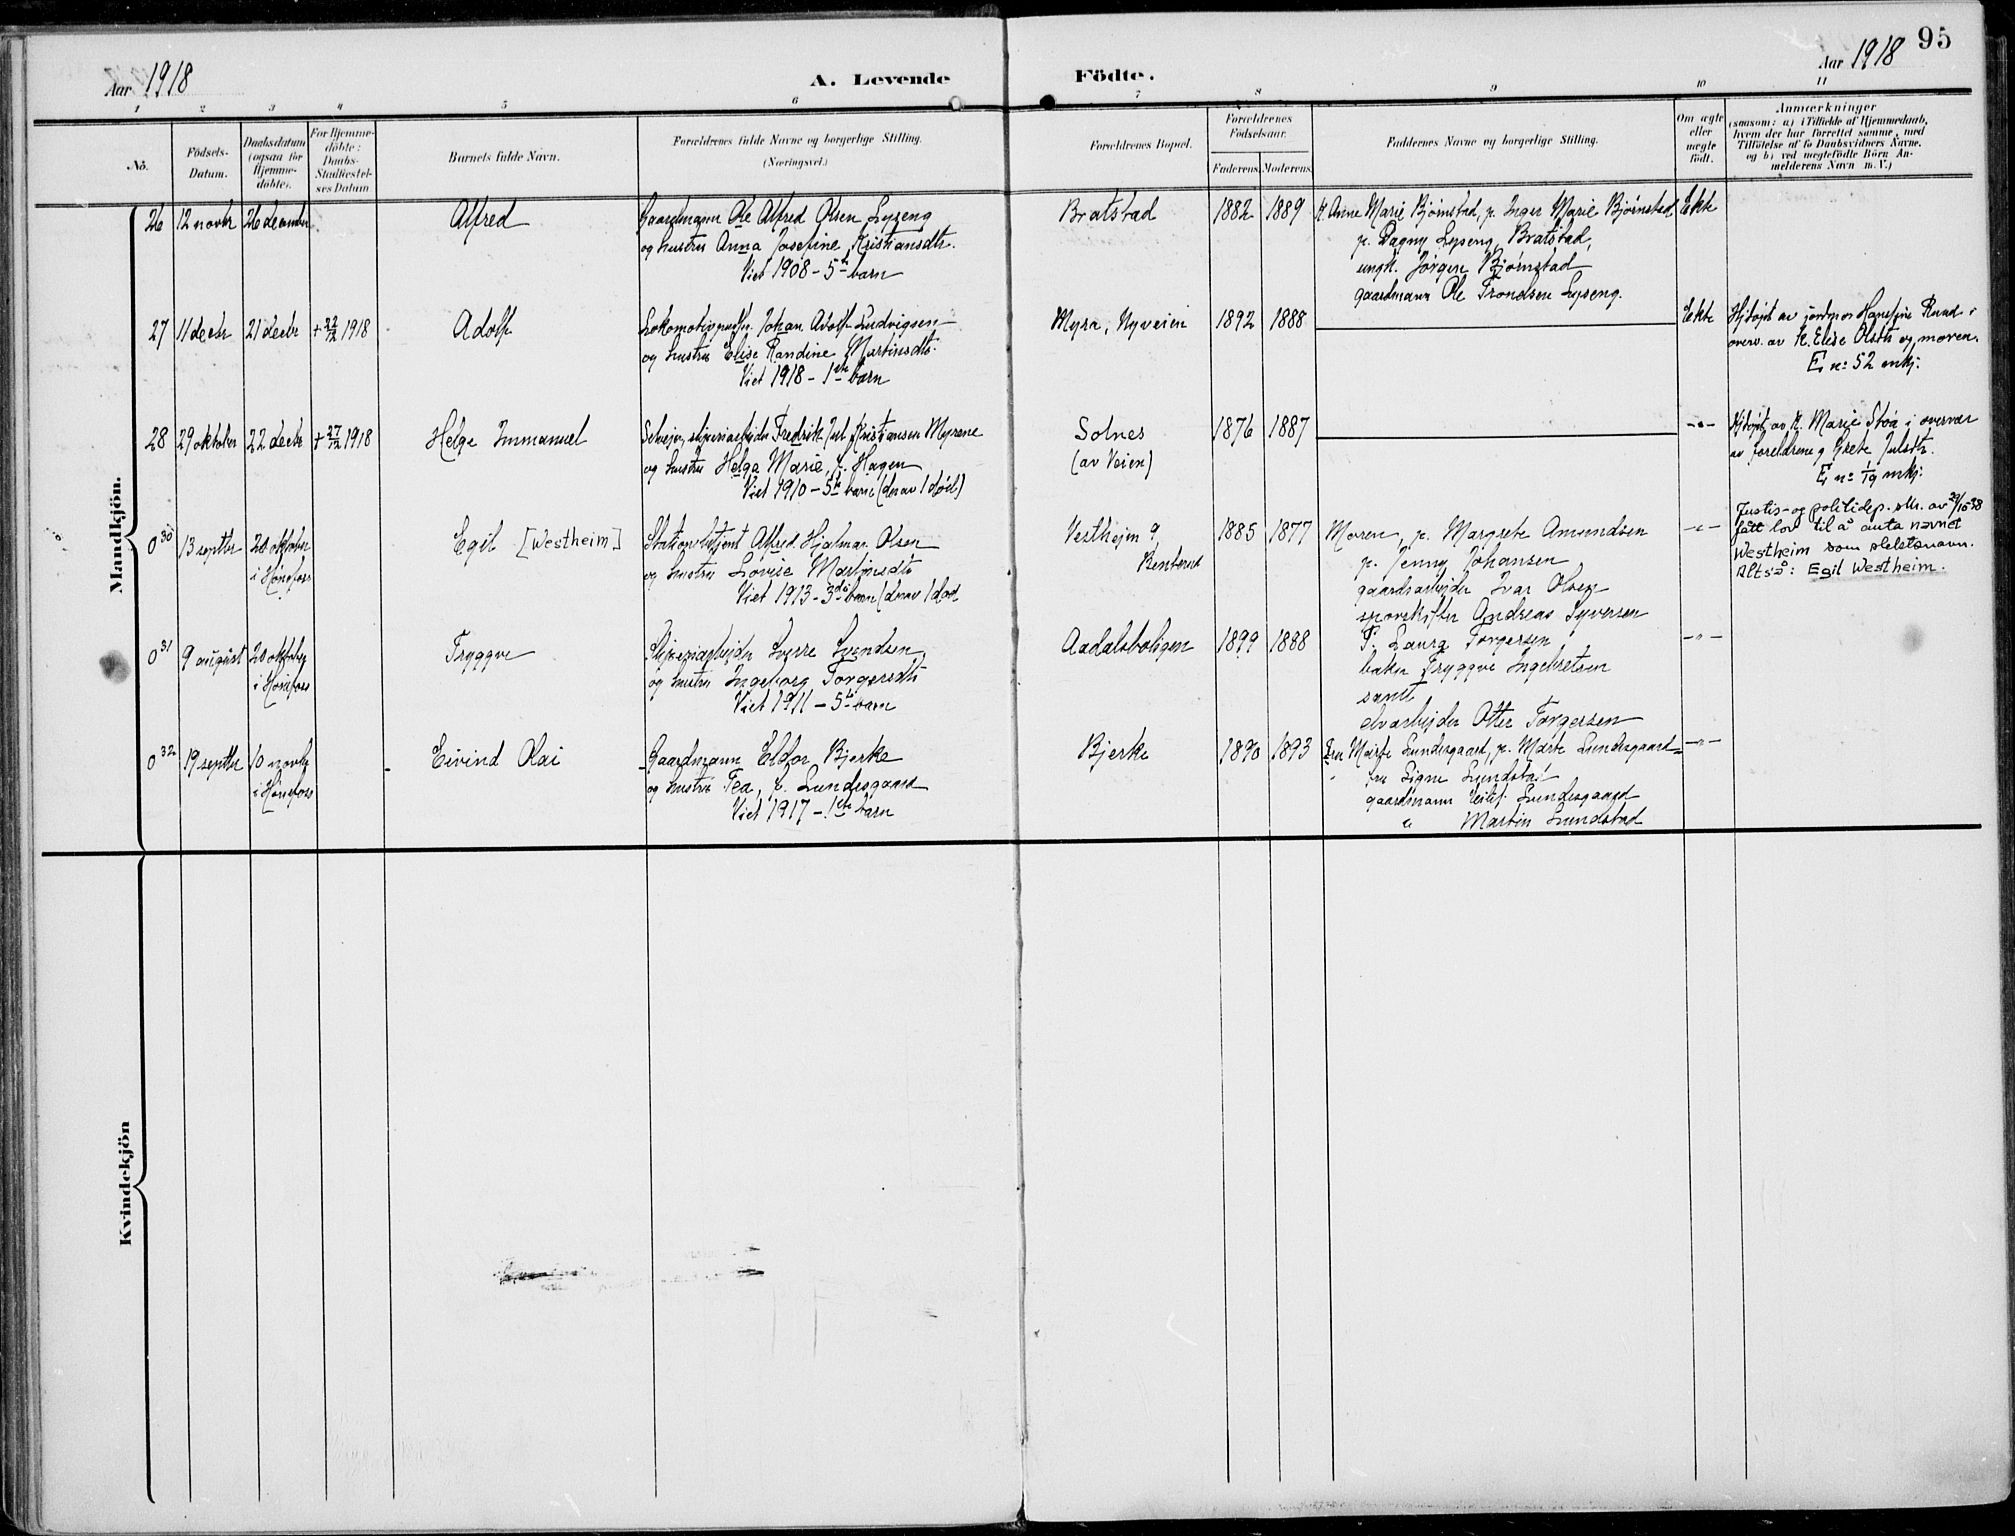 95
Aar 1918
A. Levende
Födte.
Aar 1918
1 2 3 4 5 6 7 8 9 10 11
Nö.
Födsels-
Datum.
Daabsdatum
(ogsaa for
Hjemme-
döbte).
For Hjemme-
döbte:
Daabs-
Stadfæstel-
ses Datum
Barnets fulde Navn.
Forældrenes fulde Navne og borgerlige Stilling.
(Næringsvei.)
Forældrenes Bopæl.
Forældrenes
Födselsaar.
Faderens. Moderens.
Faddernes Navne og borgerlige Stilling.
Om ægte
eller
uægte
födt.
Anmærkninger
(saasom: a) i Tilfælde af Hjemmedaab,
hvem der har forrettet samme, med
Tilföielse af to Daabsvidners Navne,
og b) ved uægtefödte Börn An-
melderens Navn m. V.)
Mandkjön.
26 12 novbr 26 december Alfred
Gaardmann Ole Alfred Olsen Lyseng
og hustru Anna Josefine Kristiansdtr.
Viet 1908 - 5te barn
Bratstad 1882 1889
K. Anne Marie Bjørnstad, p. Inger Marie Bjørnstad
p. Dagny Lyseng, Bratstad,
ungk. Jørgen Bjørnstad
gaardmann Ole Trondsen Lyseng.
Ekte
27 11 decbr 21 decbr + 22/12 1918 Adolf
Lokomotivpudser Johan Adolf Ludvigsen
og hustru Elise Randine Martinsdtr.
Viet 1918 - 1ste barn
Myra, Nyveien 1892 1888
Ekte
Hjdøpt av jordmor Hansine Ruud i
overv. av K. Elise Olsdtr og moren.
E n: 52 mkj:
28 29 oktober 22 decbr + 27/12 1918 Helge Immanuel
Selveier, sliperiarbeider Fredrik Jul. Kristiansen Myrene
og hustru Helga Marie, f. Hagen
Viet 1910 - 5te barn (derav 1 død)
Solnes
(av Veien)
1876 1887
-"-
Hjdøpt av K. Marie Stoa i overvær
av foreldrene og Grete Julsdtr.
E n: 1/19 mkj:
0 30 13 septbr 20 oktober
i Hønefoss
Egil [Westheim]
Stationsbetjent Alfred Hjalmar Olsen
og hustru Lovise Martinsdtr
Viet 1913 - 3die barn (derav 1 død
Vestheim 9,
Benterud
1885 1877
Moren, p. Margrete Amundsen
p. Jenny Johansen
gaardsarbeider Ivar Olsen
sporskifter Andreas Syversen
-"-
Justis- og politidep. skr. av 29/10-38
fått lov til å anta navnet
Westheim som slektsnavn.
Altså: Egil Westheim.
0 31 9 august 20 oktober
i Hønefoss
Tryggve
Sliperiarbeider Sverre Svendsen
og hustru Ingeborg Torgersdtr
Viet 1911 - 5te barn
Aadalsboligen 1899 1888
P. Laura Torgersen
baker Tryggve Ingebretsen
samt
elvarbeider Otter Torgersen
-"-
0 32 19 septbr 10 novbr
i Hønefoss
Eivind Olai
Gaardmann Eldor Bjerke
og hustru Tea, f. Lundesgaard
Viet 1917 - 1ste barn
Bjerke 1890 1893
Fru Marte Lundesgaard, p. Marte Lundesgaard
fru Signe Lundstad
gaardmann Lundesgaard
" Martin Lundstad
-"-
Kvindekjön